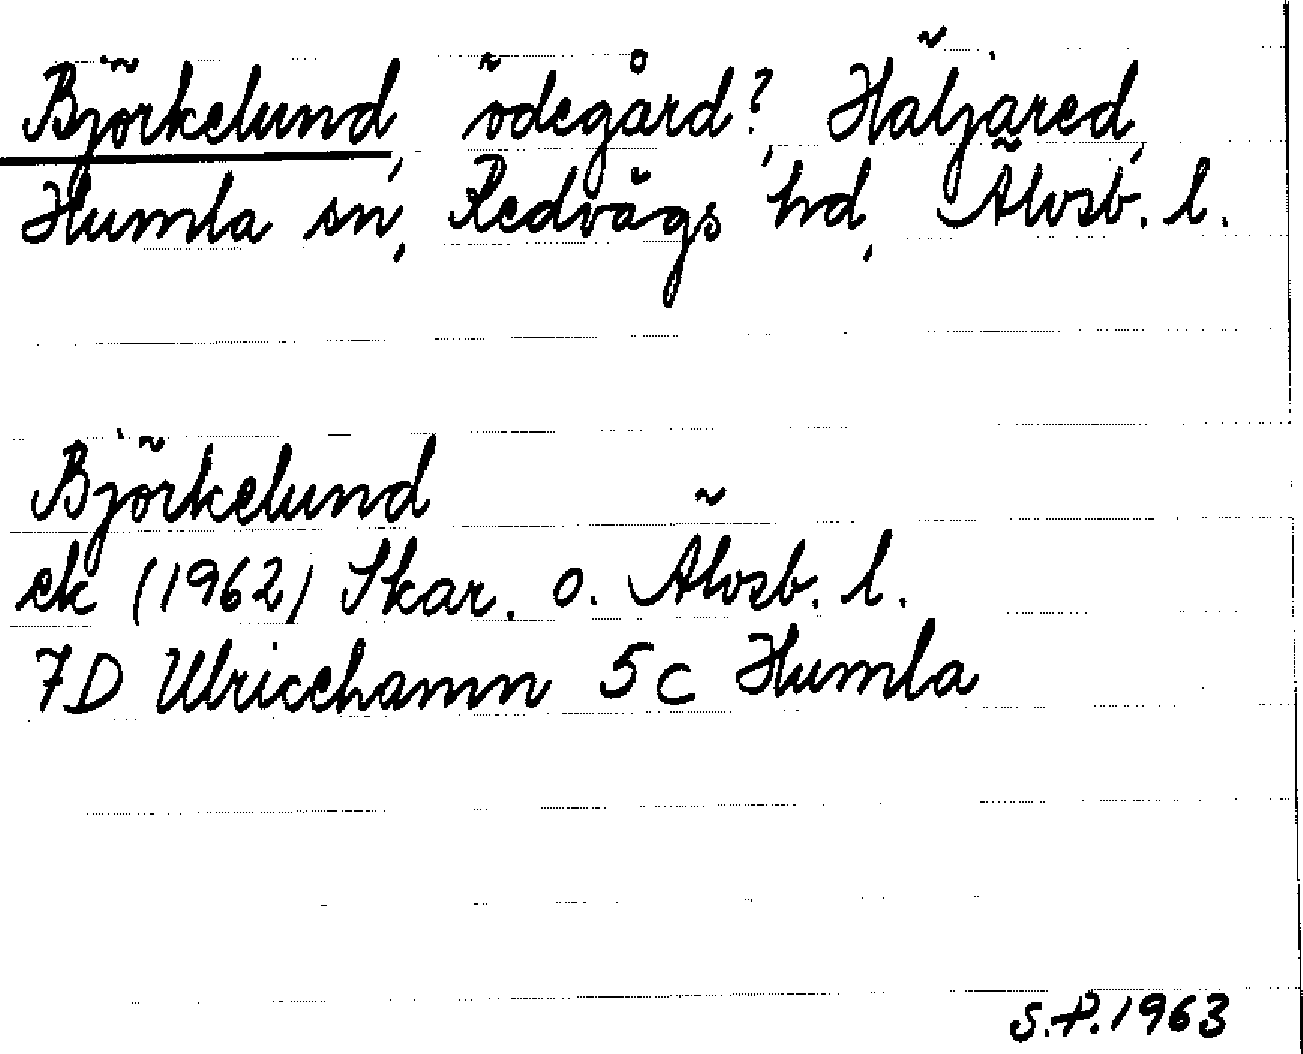 Björkelund, ödegård?, Häljared,
Humla sn, Redvägs hd, Älvsb. l.
Björkelund
ek (1962) Skar. o. Älvsb. l.
7D Ulricehamn 5c Humla
S.P. 1963